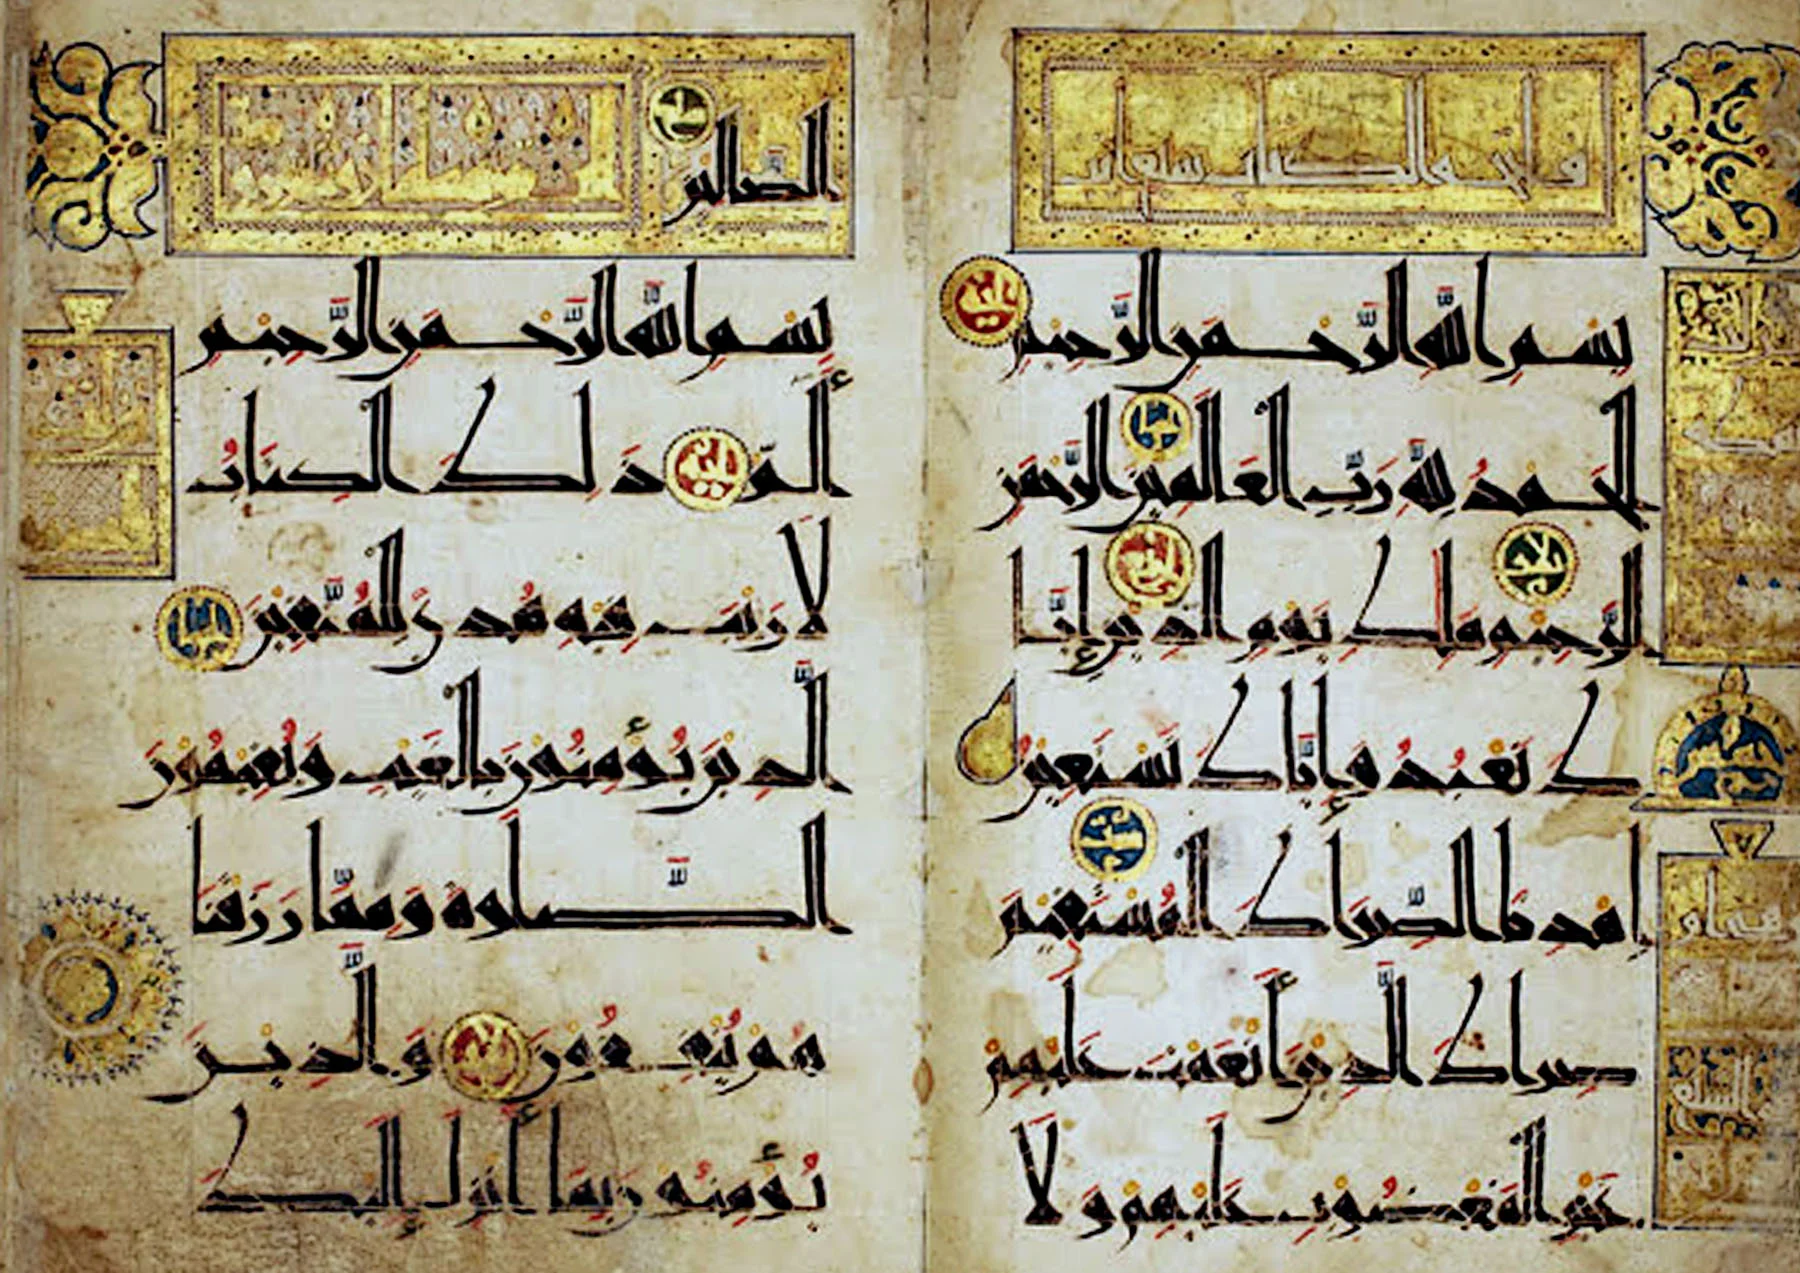 فاتحة الكتاب سبع آيات
بِسْمِ اللَّهِ الرَّحْمَنِ الرَّحِيمِ
الْحَمْدُ لِلَّهِ رَبِّ الْعَالَمِينَ الرَّحْمَنِ
الرَّحِيمِ مَالِكِ يَوْمِ الدِّينِ إِيَّا
كَ نَعْبُدُ وَإِيَّاكَ نَسْتَعِينُ
اهْدِنَا الصِّرَاطَ الْمُسْتَقِيمَ
صِرَاطَ الَّذِينَ أَنْعَمْتَ عَلَيْهِمْ
غَيْرِ الْمَغْضُوبِ عَلَيْهِمْ وَلَا
الضَّالِّينَ
بِسْمِ اللَّهِ الرَّحْمَنِ الرَّحِيمِ
الم ذَلِكَ الْكِتَابُ
لَا رَيْبَ فِيهِ هُدًى لِلْمُتَّقِينَ
الَّذِينَ يُؤْمِنُونَ بِالْغَيْبِ وَيُقِيمُونَ
الصَّلَوةَ وَمِمَّا رَزَقْنَا
هُمْ يُنْفِقُونَ وَالَّذِينَ
يُؤْمِنُونَ بِمَا أُنْزِلَ إِلَيْكَ